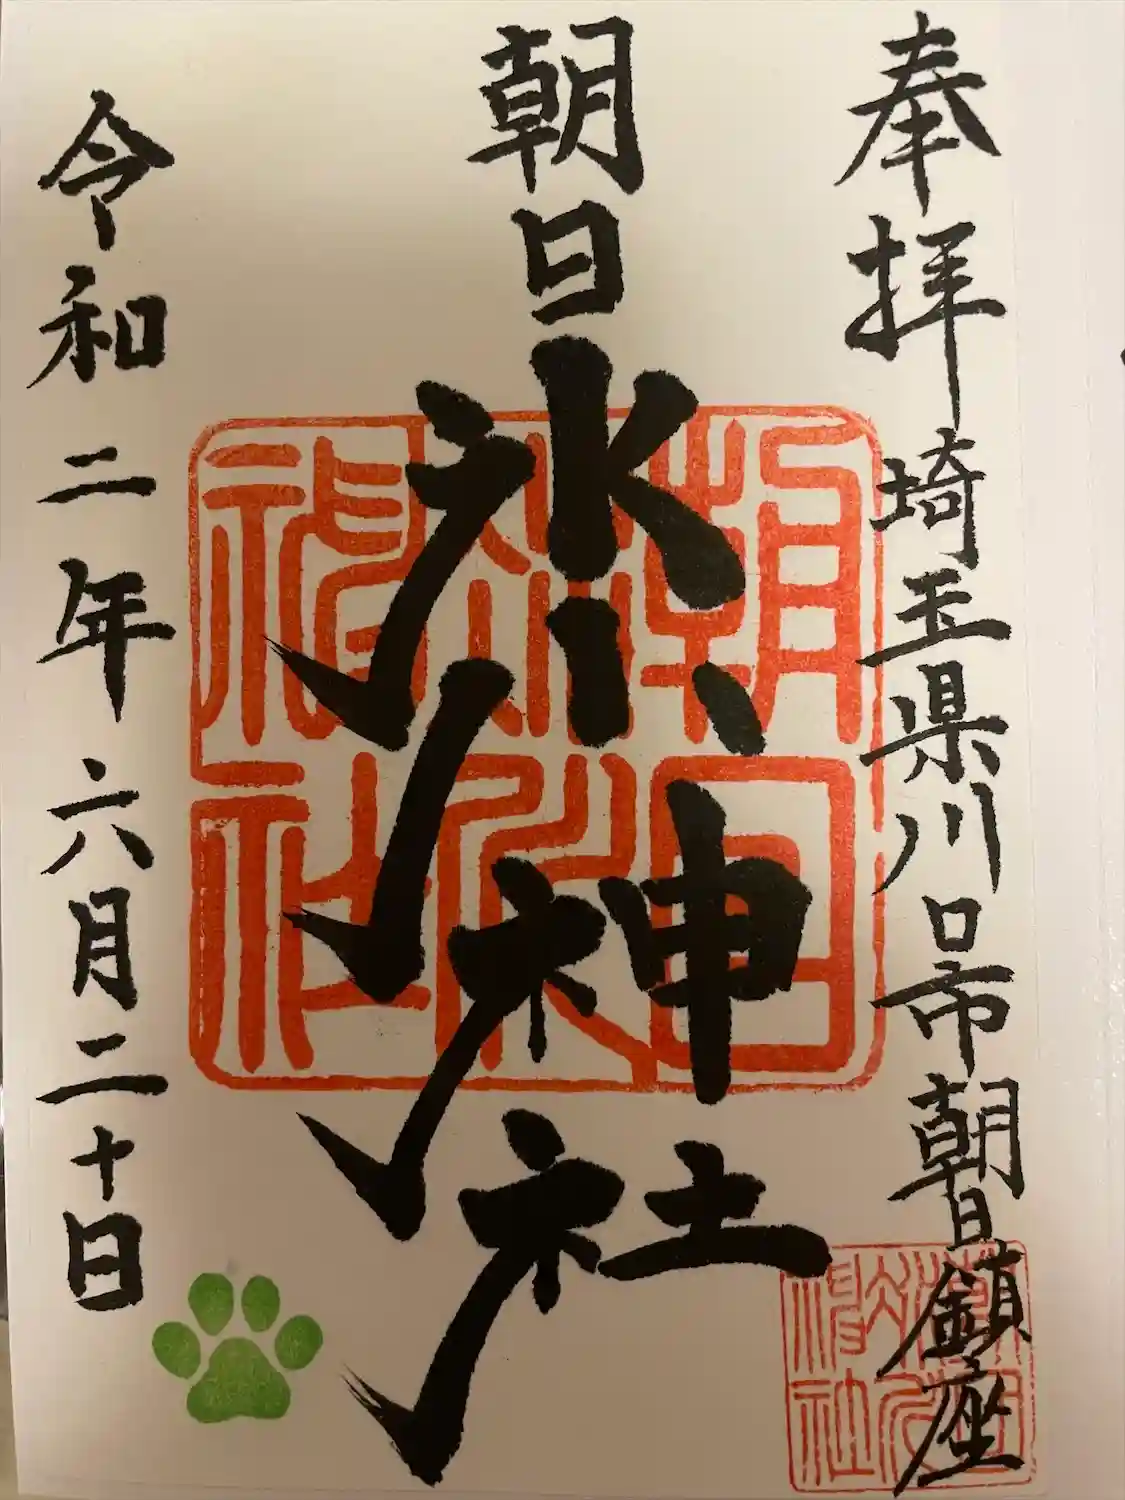 奉拝
埼玉県川口市朝日鎮座
朝日氷川神社
令和二年六月二十日
朝日
氷川
神社
朝日
氷川
神社